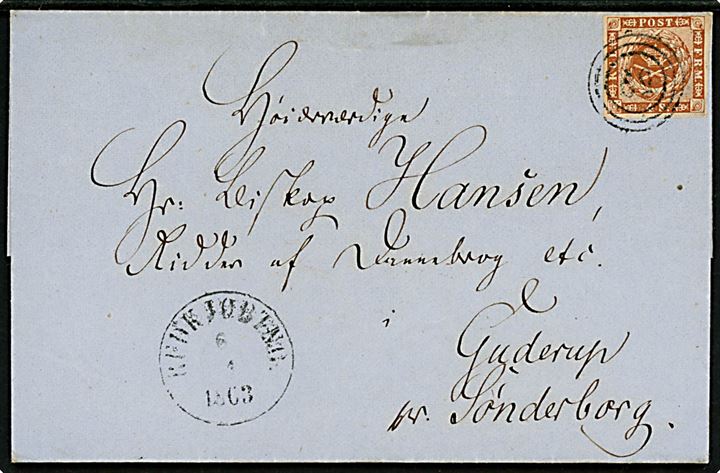 POST
FRM
Höiærværdige
Hr: Biskop Hansen,
Ridder af Dannebrog etc.
i
Guderup
pr. Sönderborg.
RUDKJØBING.
6
4
1863